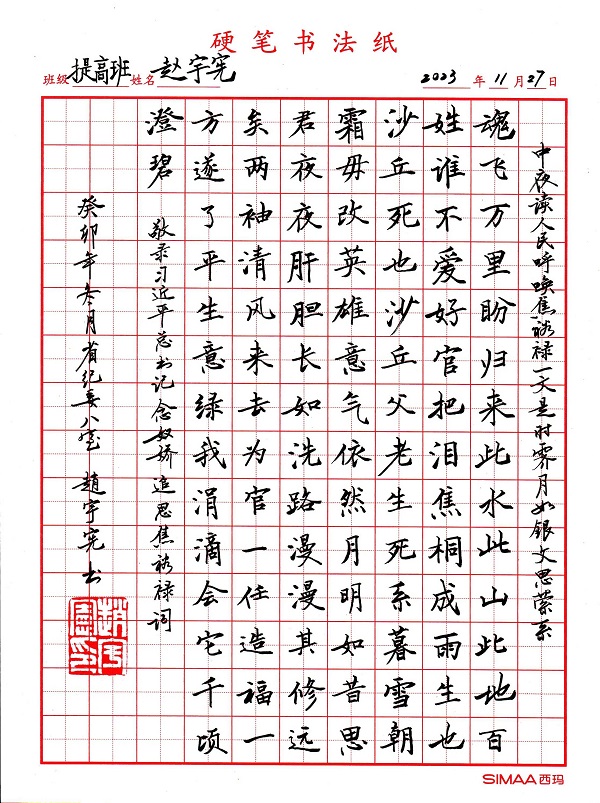 硬笔书法纸
班级 提高班 姓名 赵宇宪 2023 年 11 月 27 日
中夜读人民呼唤焦裕禄一文是时霁月如银文思萦系
魂飞万里盼归来此水此山此地百
姓谁不爱好官把泪焦桐成雨生也
沙丘死也沙丘父老生死系暮雪朝
霜毋改英雄意气依然月明如昔思
君夜夜肝胆长如洗路漫漫其修远
矣两袖清风来去为官一任造福一
方遂了平生意绿我涓滴会它千顷
澄碧
敬录习近平总书记念奴娇 追思焦裕禄词
癸卯年冬月省纪委八室 趙宇宪书
趙宇憲印
SIMAA西玛